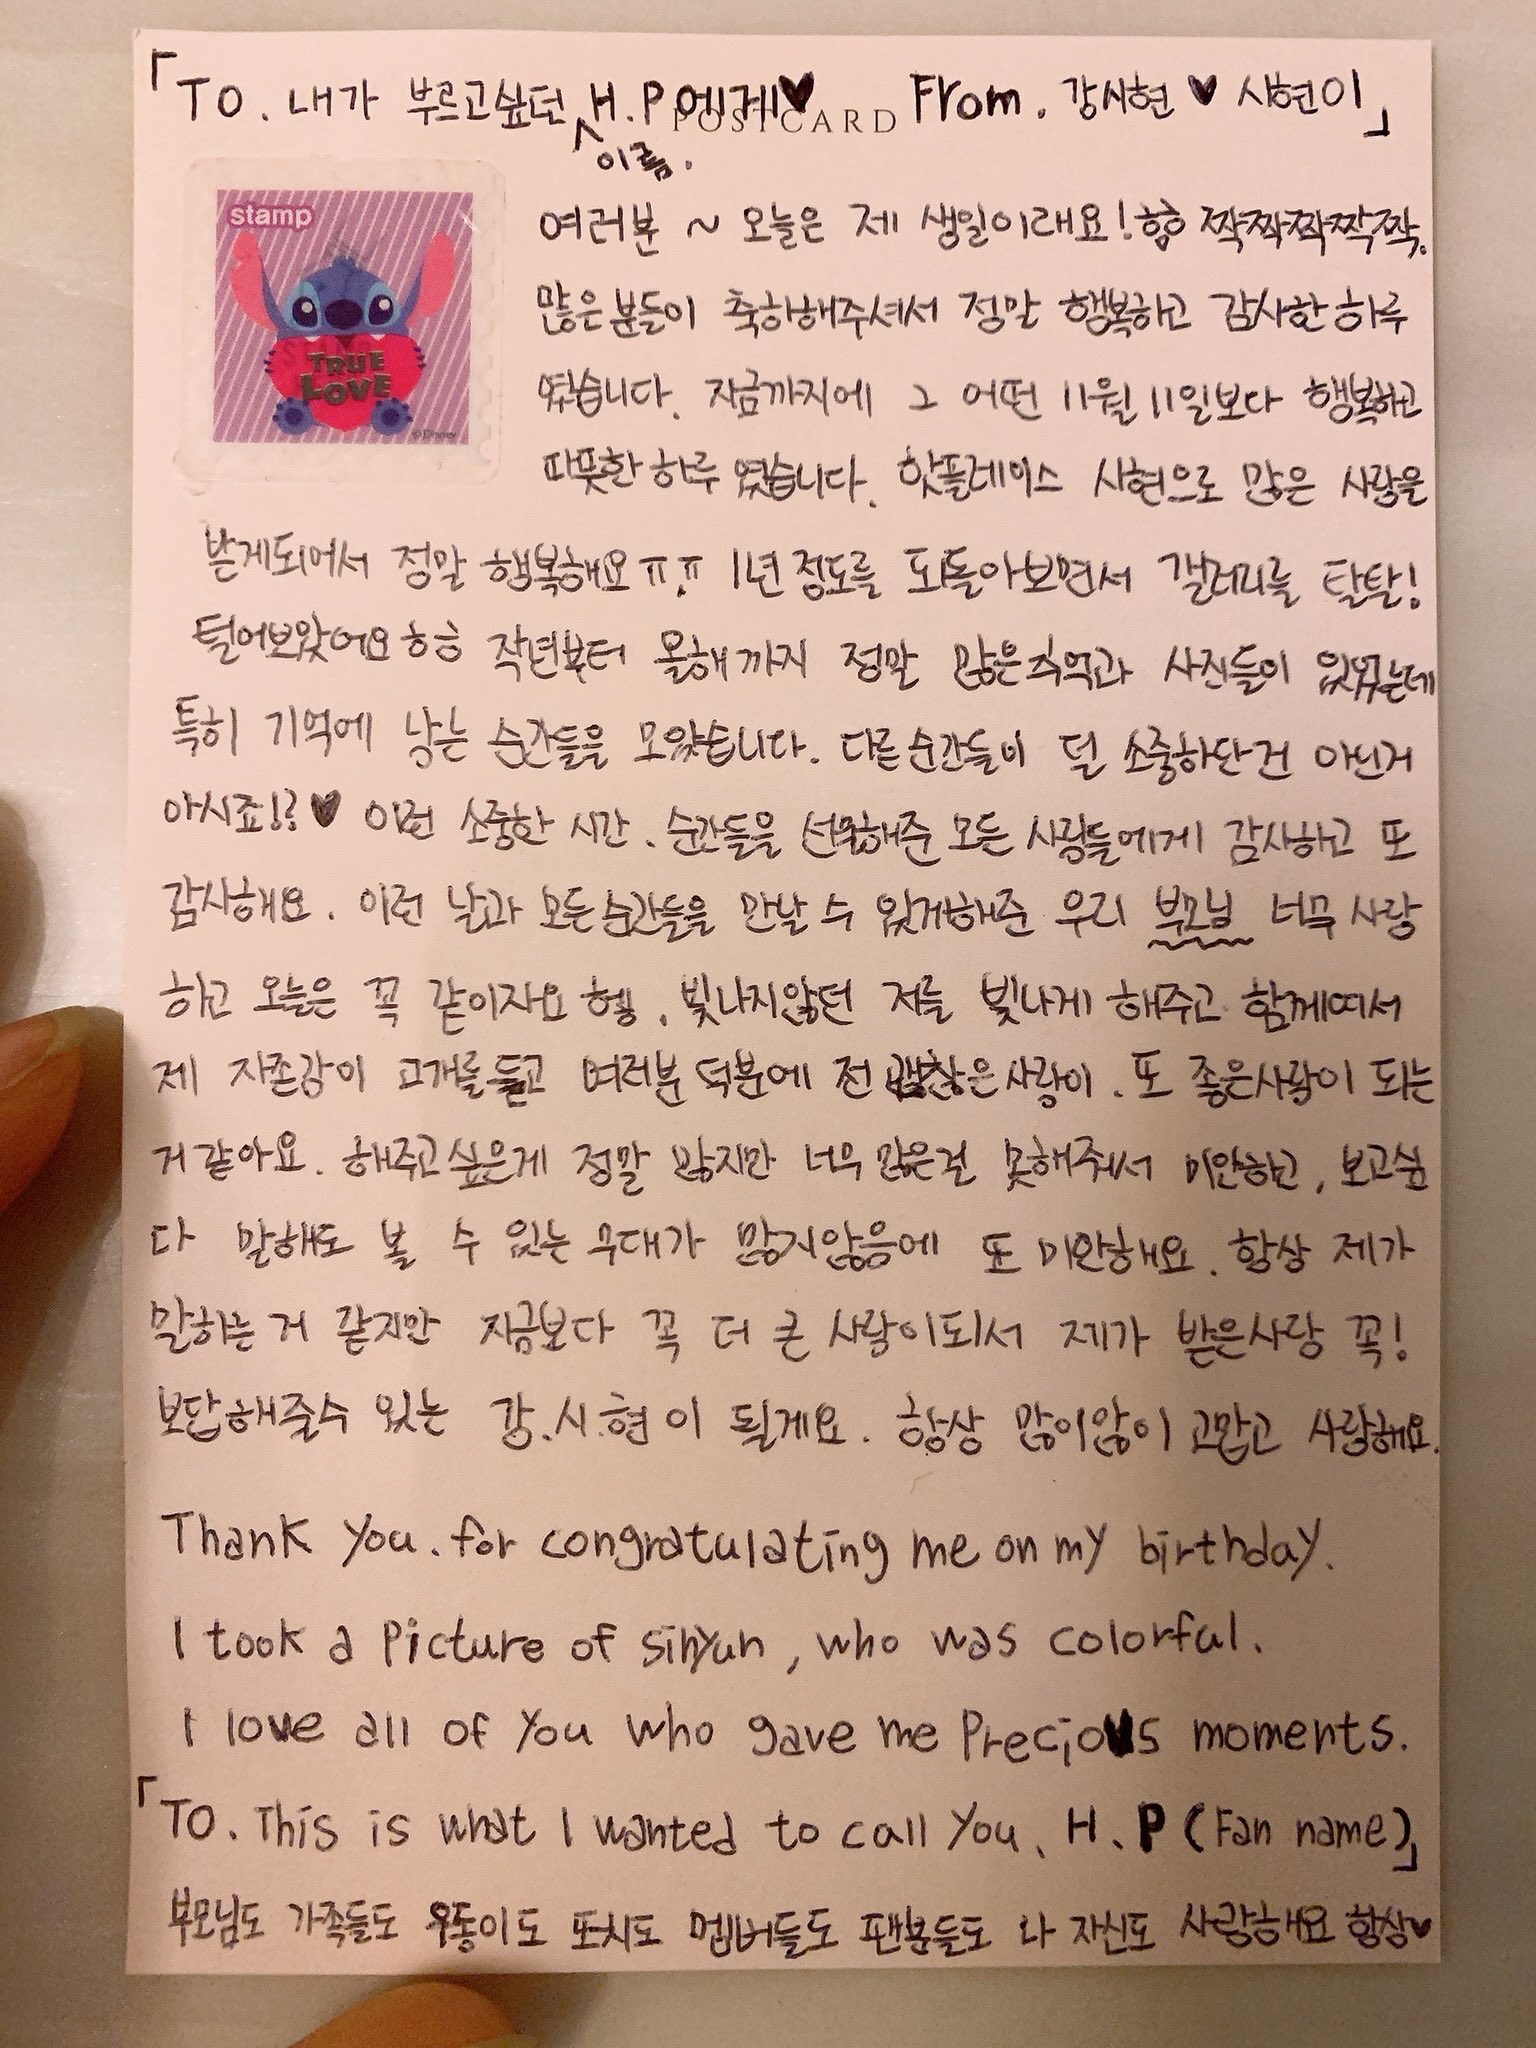 「TO. 내가 부르고싶던 H.P에게♥ From. 강시현 ♥ 시현이」
POSTCARD
이름.
stamp
TRUE
LOVE
©Disney
여러분 ~ 오늘은 제 생일이래요! 힣 짝짝짝짝짝.
많은분들이 축하해주셔서 정말 행복하고 감사한하루
였습니다. 지금까지에 그 어떤 11월 11일보다 행복하고
따뜻한하루 였습니다. 핫플레이스 시현으로 많은 사랑을
받게되어서 정말 행복해요ㅠ.ㅠ 1년정도를 되돌아보면서 갤러리를 탈탈!
털어보았어요ㅎㅎ 작년부터 올해까지 정말 많은추억과 사진들이 있었는데
특히 기억에 남는 순간들을 모았습니다. 다른순간들이 덜 소중하단건 아닌거
아시죠!?♥ 이런 소중한 시간. 순간들을 선물해준 모든 사람들에게 감사하고 또
감사해요. 이런 날과 모든순간들을 만날 수 있게해준 우리 부모님 너무 사랑
하고 오늘은 꼭 같이자요 헿. 빛나지않던 저를 빛나게 해주고 함께여서
제 자존감이 고개를들고 여러분 덕분에 전 괜찮은사람이. 또 좋은사람이 되는
거같아요. 해주고싶은게 정말 많지만 너무 많은걸 못해줘서 미안하고, 보고싶
다 말해도 볼 수 있는 무대가 많지않음에 또 미안해요. 항상 제가
말하는거 같지만 지금보다 꼭 더 큰 사람이되서 제가 받은사랑 꼭!
보답해줄수 있는 강.시.현이 될게요. 항상 많이많이 고맙고 사랑해요.
Thank you. for congratulating me on my birthday.
I took a picture of sihyun, who was colorful.
I love all of you who gave me precious moments.
「TO. This is what I wanted to call you. H.P (Fan name)」
부모님도 가족들도 우동이도 또치도 멤버들도 팬분들도 나 자신도 사랑해요 항상♥